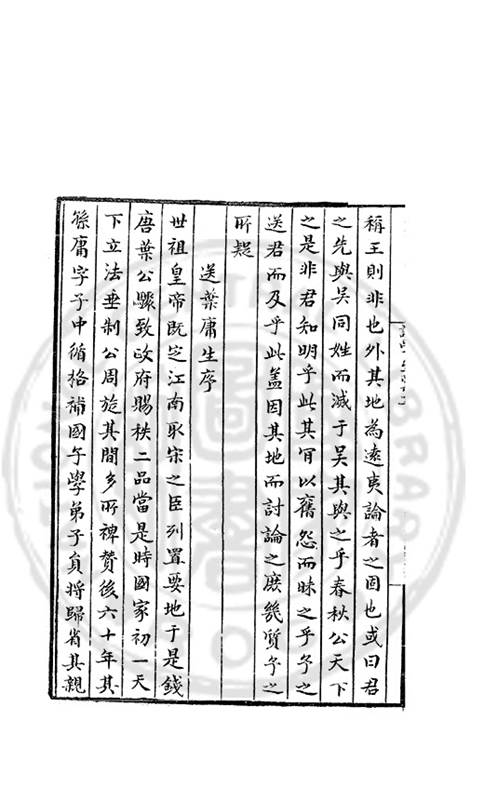 稱王則非也外其地為遠夷論者之固也或曰君
之先與吳同姓而滅于吳其與之乎春秋公天下
之是非君知明乎此其肎以舊怨而昧之乎予之
送君而及乎此盖因其地而討論之庶㡬質予之
所疑
送葉庸生序
世祖皇帝既定江南取宋之臣列置要地于是錢
唐葉公驟致政府賜秩二品當是時國家初一天
下立法垂制公周旋其間多所裨賛後六十年其
孫庸字子中循格補國子學弟子員將歸省其親